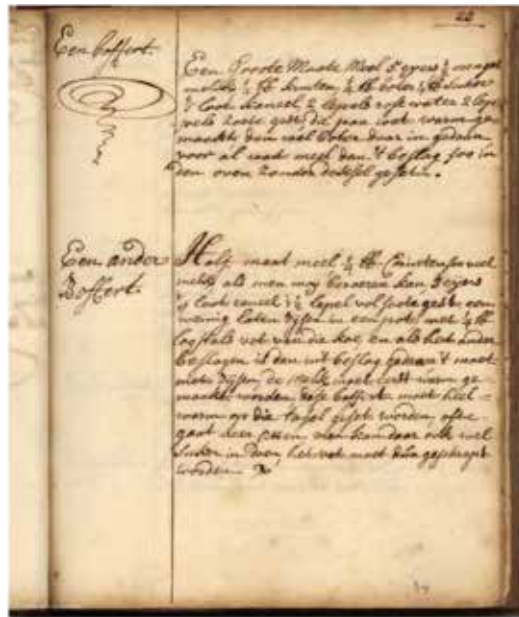 22
Een boffert.
Een Groote Maate Meel 5 eyers ½ mengel
melk ½ lb krenten, ¼ lb boter ¼ lb suiker
1 loot kaneel 2 lepels rose water 2 lepels
gest die pan ook warm ge-
maackt dan wel boter daar in gedaan
voor al meel dan 't beslag soo in
den oven zonder decksel geset.
Een ander
Boffert.
Half maat meel ¼ lb Corinten soo veel
melk als men moy beroeren kan 3 eyers
½ loot caneel 1½ lepel vol gest een
weinig laten in een pot met ¼ lb
vet van die koe, en als het ander
beslagen is dan uit beslag gedaan 't moet
niet de melk moet eerst warm ge-
maakt worden, dese boffert moet heel
warm op die tafel geset worden, ofte
gaat men kan daar ook wel
suiker in doen, het vet moet dun geschrapt
worden